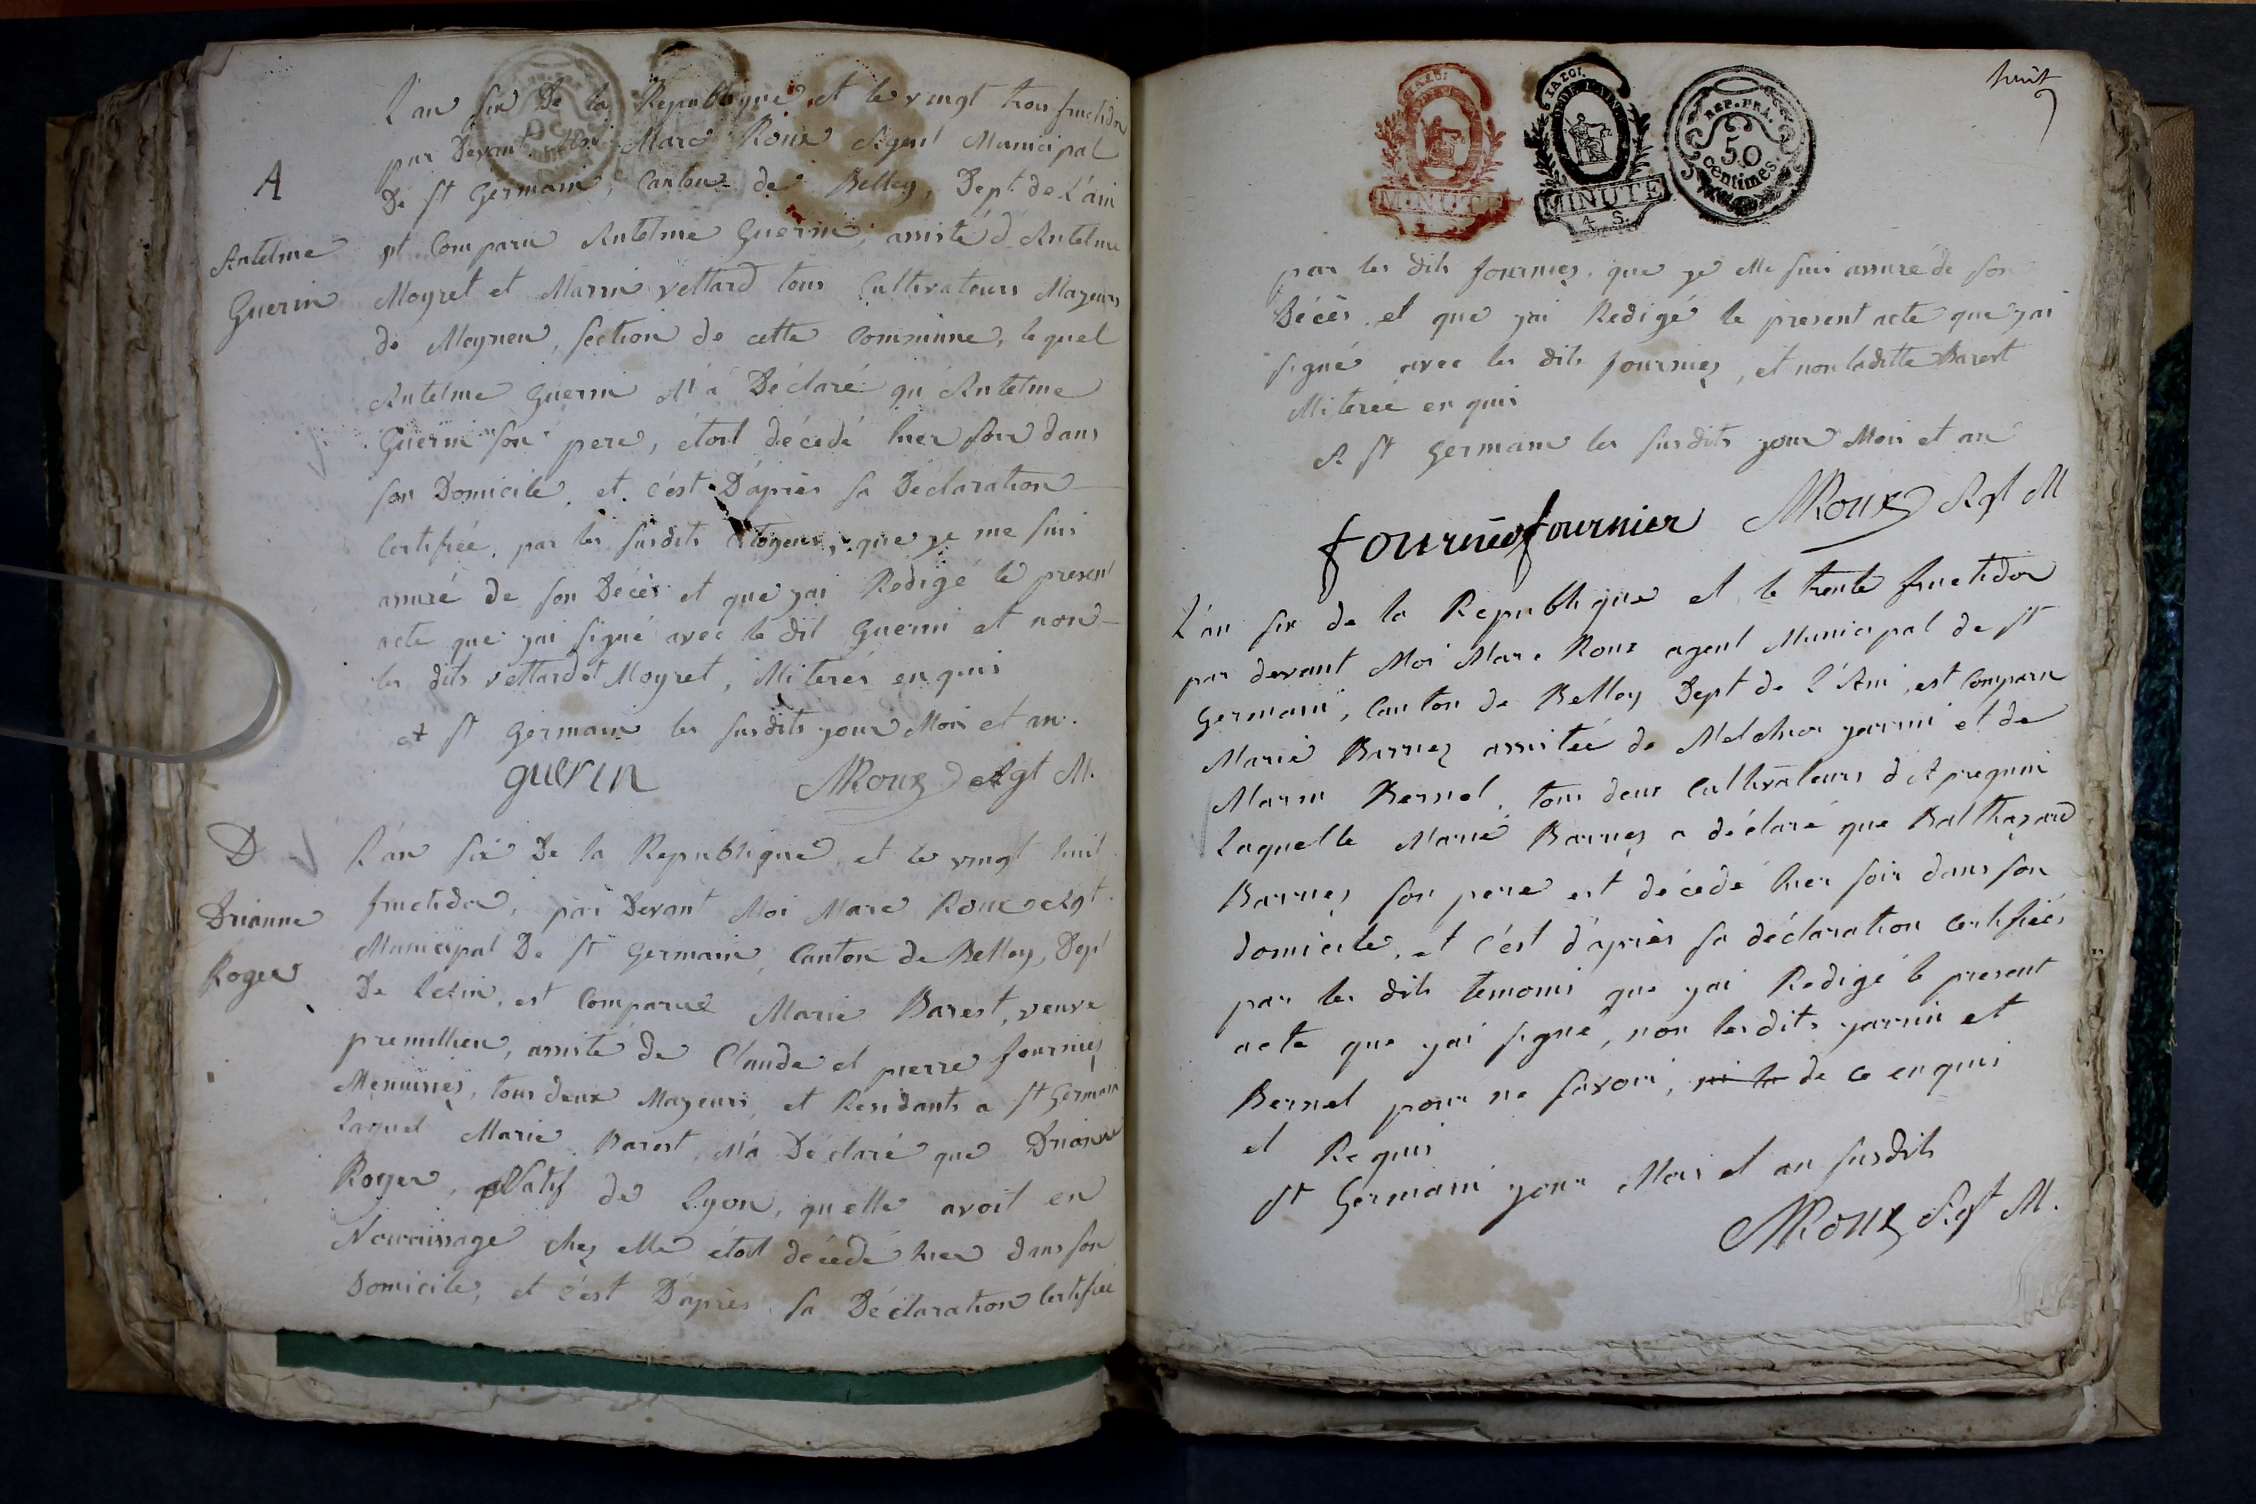 L'an six De la Republique et le vingt trois fructidor
par Devant Moi Marc Roux Agent Municipal
De st Germain, Canton de Belley, Dept de L'ain
A
Antelme
Guerin
st Comparu Antelme Guerin, assisté d'Antelme
Moyret et Marin vettard tous Cultivateurs Mayeurs
de Meyrieu, section de cette Commune, lequel
Antelme Guerin M'a Déclaré qu'Antelme
Guerin son pere, étoit décedé hier soir dans
son Domicile, et c'est D'après sa Déclaration
Certifiée, par les susdits Citoyens, que je me suis
assuré de son Décès et que j'ai Redigé le present
acte que j'ai signé avec le dit Guerin et non
les dits vettard et Moyret, Miterés enquis
A st Germain les susdits jour Mois et an.
guerin MRoux Agt M.
D
Drianne
Roger
L'an six De la Republique et le vingt huit
fructidor, par Devant Moi Marc Roux Agt
Municipal De st Germain, Canton de Belley, Dept
De L'ain, est Comparue Marie Barest, veuve
premillieu, assisté de Claude et pierre fournier
Menuisier, tous deux Mayeurs, et Residants a st Germain
laquel Marie Barest, M'a Déclaré que Drianne
Roger, Natif de Lyon, qu'elle avoit en
Nourrissage chez elle étoit décedé hier dans son
Domicile, et c'est D'après sa Déclaration Certifiée
huit
MINUTE
MINUTE
4 S.
REP. FRA.
50
Centimes
par les dits fournier, que je Me suis assuré de son
Décès, et que j'ai Redigé le present acte que j'ai
signé avec les dits fournier, et non laditte Barest
Miterée enquis
A st Germain les susdits jour Mois et an
fournier fournier MRoux Agt M
L'an six de la Republique et le trente fructidor
par devant Moi Marc Roux agent Municipal de st
Germain, Canton de Belley Dept de L'Ain, est Comparu
Marie Barnez assistée de Melchior jannin et de
Marin Bernel, tous deux Cultivateurs d'Apregnin
laquelle Marie Barnez a déclaré que Balthazard
Barnez son pere est décedé hier soir dans son
domicile, et c'est d'après sa déclaration certifiées
par les dits temoins que j'ai Redigé le present
acte que j'ai signé, non lesdits jannin et
Bernel pour ne savoir, ni la de ce enquis
et Requis
st Germain jour Mois et an susdits
MRoux Agt M.